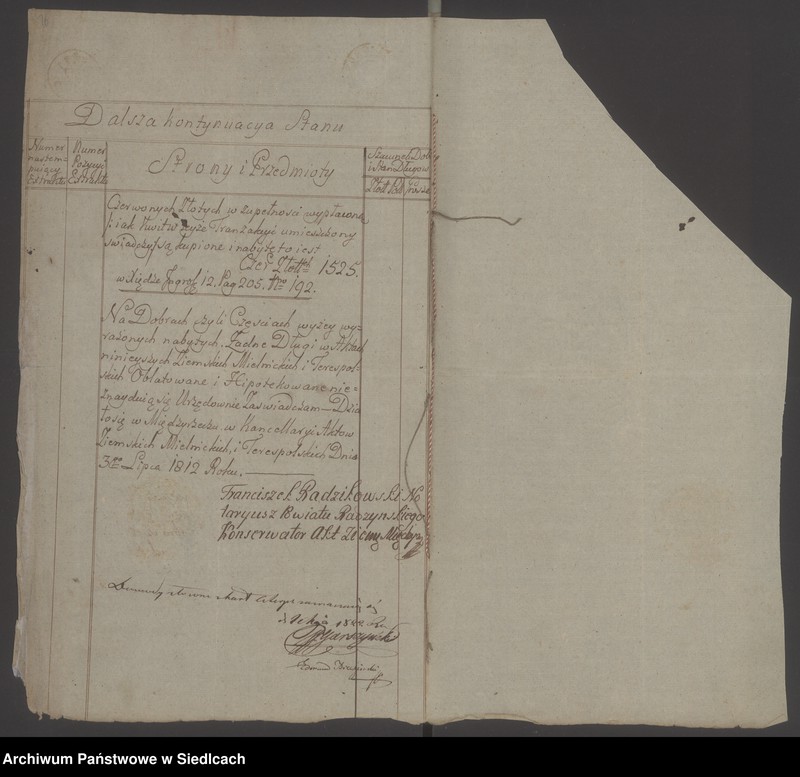 16
Dalsza kontynuacya Stanu
Numer nastempuiący Estraktu
Numer Pozycyi Estraktu
Strony i Przedmioty
Szacunek Dobr i Stan Długow
Złot. Pol.
grosze
Czerwonych Złotych w zupełnosci wypłaconą
iak Kwit w teyże Tranzakcyi umieszczony
swiadczy są kupione i nabyte to iest
Czer. Złott. 1525.
w Xiędze Ingros. 12. Pag 205. Nro 192.
Na Dobrach czyli Częsciach wyżey wy=
rażonych nabytych, Żadne Długi w Aktach
ninieyszych Ziemskich Mielnickich i Terespol-
skich Oblatowane i Hipotekowane nie=
znayduią się Urzędownie Zaswiadczam — Dzia
łosię w Międzyrzeczu w Kancellaryi Aktow
Ziemskich Mielnickich, i Terespolskich Dnia
3go Lipca 1812 Roku.
Franciszek Radzikowski No
taryusz Pwiatu Radzynskiego
Konserwator Akt Ziems Międzyrz
Archiwum Państwowe w Siedlcach